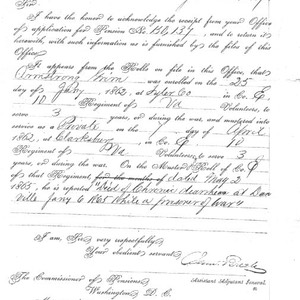 Sir
I have the honor to acknowledge the receipt from your Office
of application for Pension No. 136,137, and to return it
herewith, with such information as is furnished by the files of this
Office.
It appears from the Rolls on file in this Office, that
Armstrong was enrolled on the 25
day of Jany, 1862, at Tyler Co in Co. G,
10 Regiment of Va Volunteers, to
serve 3 years, or during the war, and mustered into
service as a Private on the day of April
1862, at Clarksburg, in Co. G 10
Regiment of Va Volunteers, to serve 3
years, or during the war. On the Muster Roll of Co. G
of that Regiment, for the months of dated May 2
1865, he is reported "Died of Chronic diarrhoea at Dan
ville Jany 6 1865 while a prisoner of war"
I am, Sir, very respectfully,
Your obedient servant,
Assistant Adjutant General
The Commissioner of Pensions
Washington D. C.